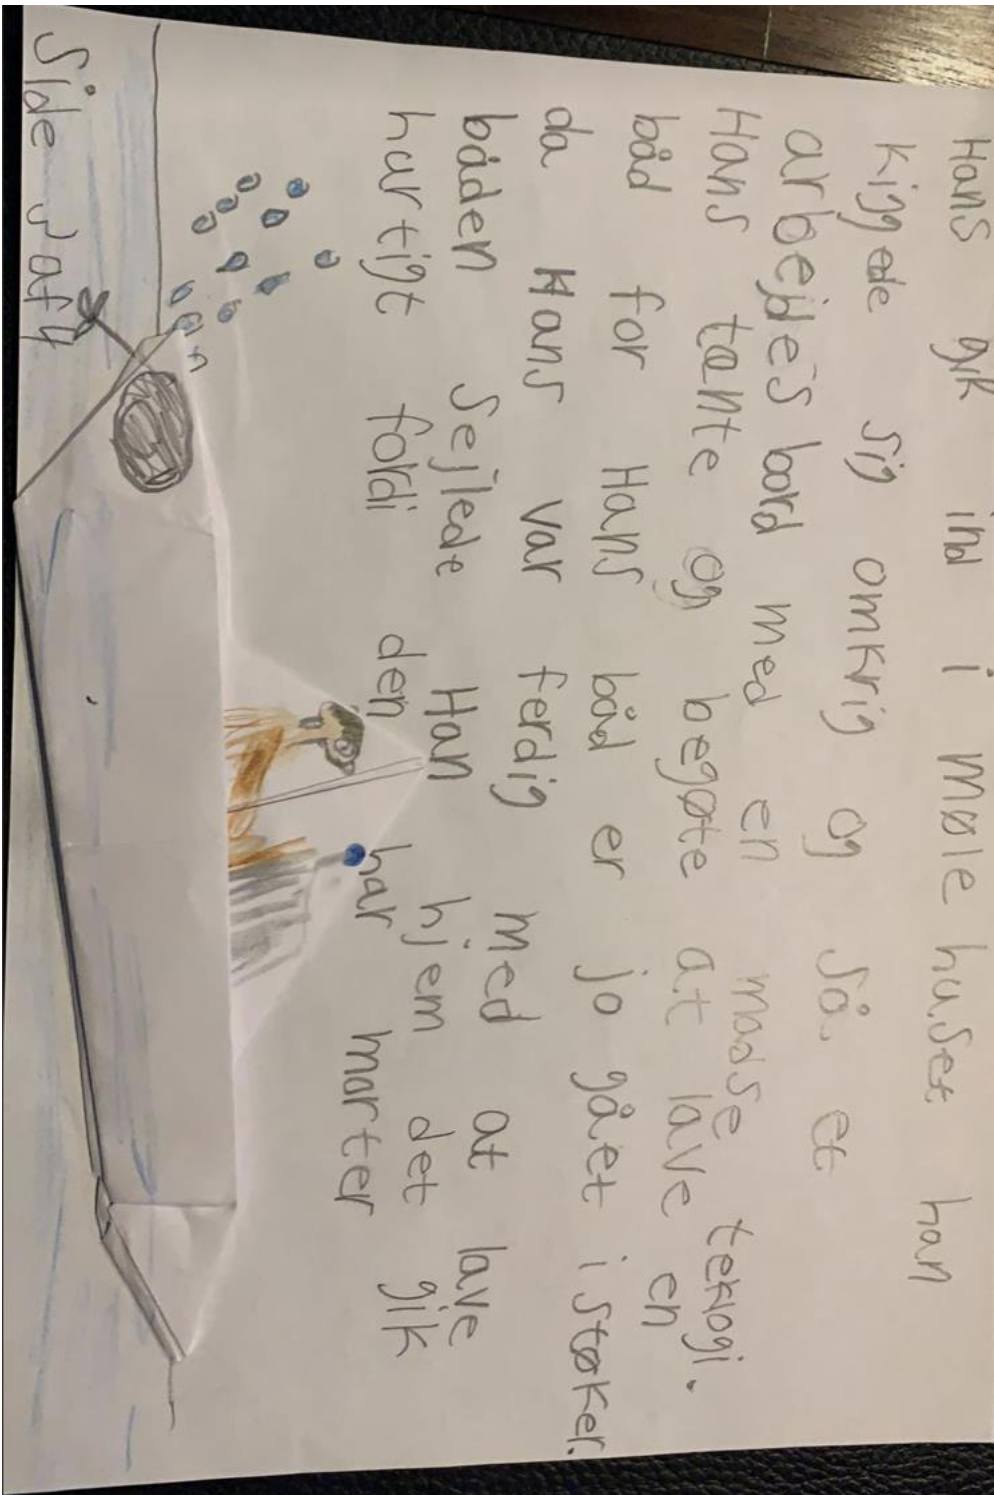 Hans gik ind i møle huset han
kiggede sig omkrig og så et
arbejdes bord med en masse teknogi.
Hans tænte og begøte at lave en
båd for Hans båd er jo gået i støker.
da Hans var ferdig med at lave
båden sejlede Han hjem det gik
hurtigt fordi den har morter
Side 3 af 4